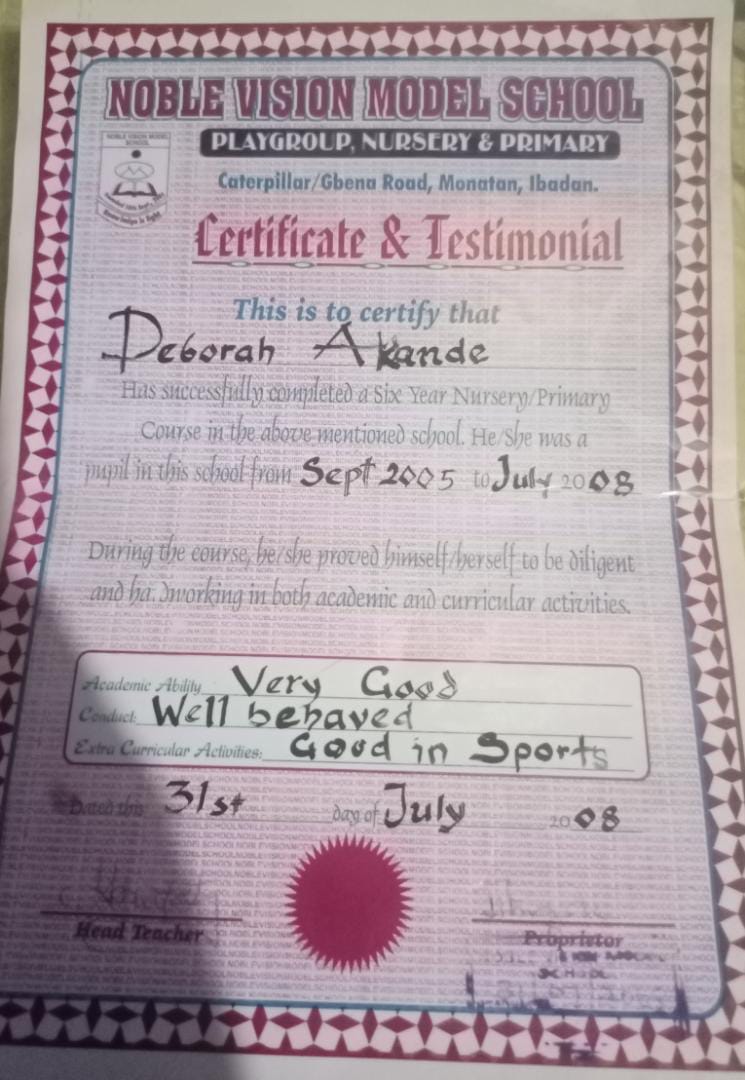 NOBLE VISION MODEL SCHOOL
PLAYGROUP, NURSERY & PRIMARY
NOBLE VISION MODEL
SCHOOL
Caterpillar/Gbena Road, Monatan, Ibadan.
Certificate & Testimonial
This is to certify that
Deborah Akande
Has successfully completed a Six Year Nursery/Primary
Course in the above mentioned school. He/She was a
pupil in this school from Sept 2005 to July 2008
During the course, he/she proved himself/herself to be diligent
and hardworking in both academic and curricular activities.
Academic Ability Very Good
Conduct: Well behaved
Extra Curricular Activities: Good in Sports
Dated this 31st day of July 2008
Head Teacher
Proprietor
SCHOOL